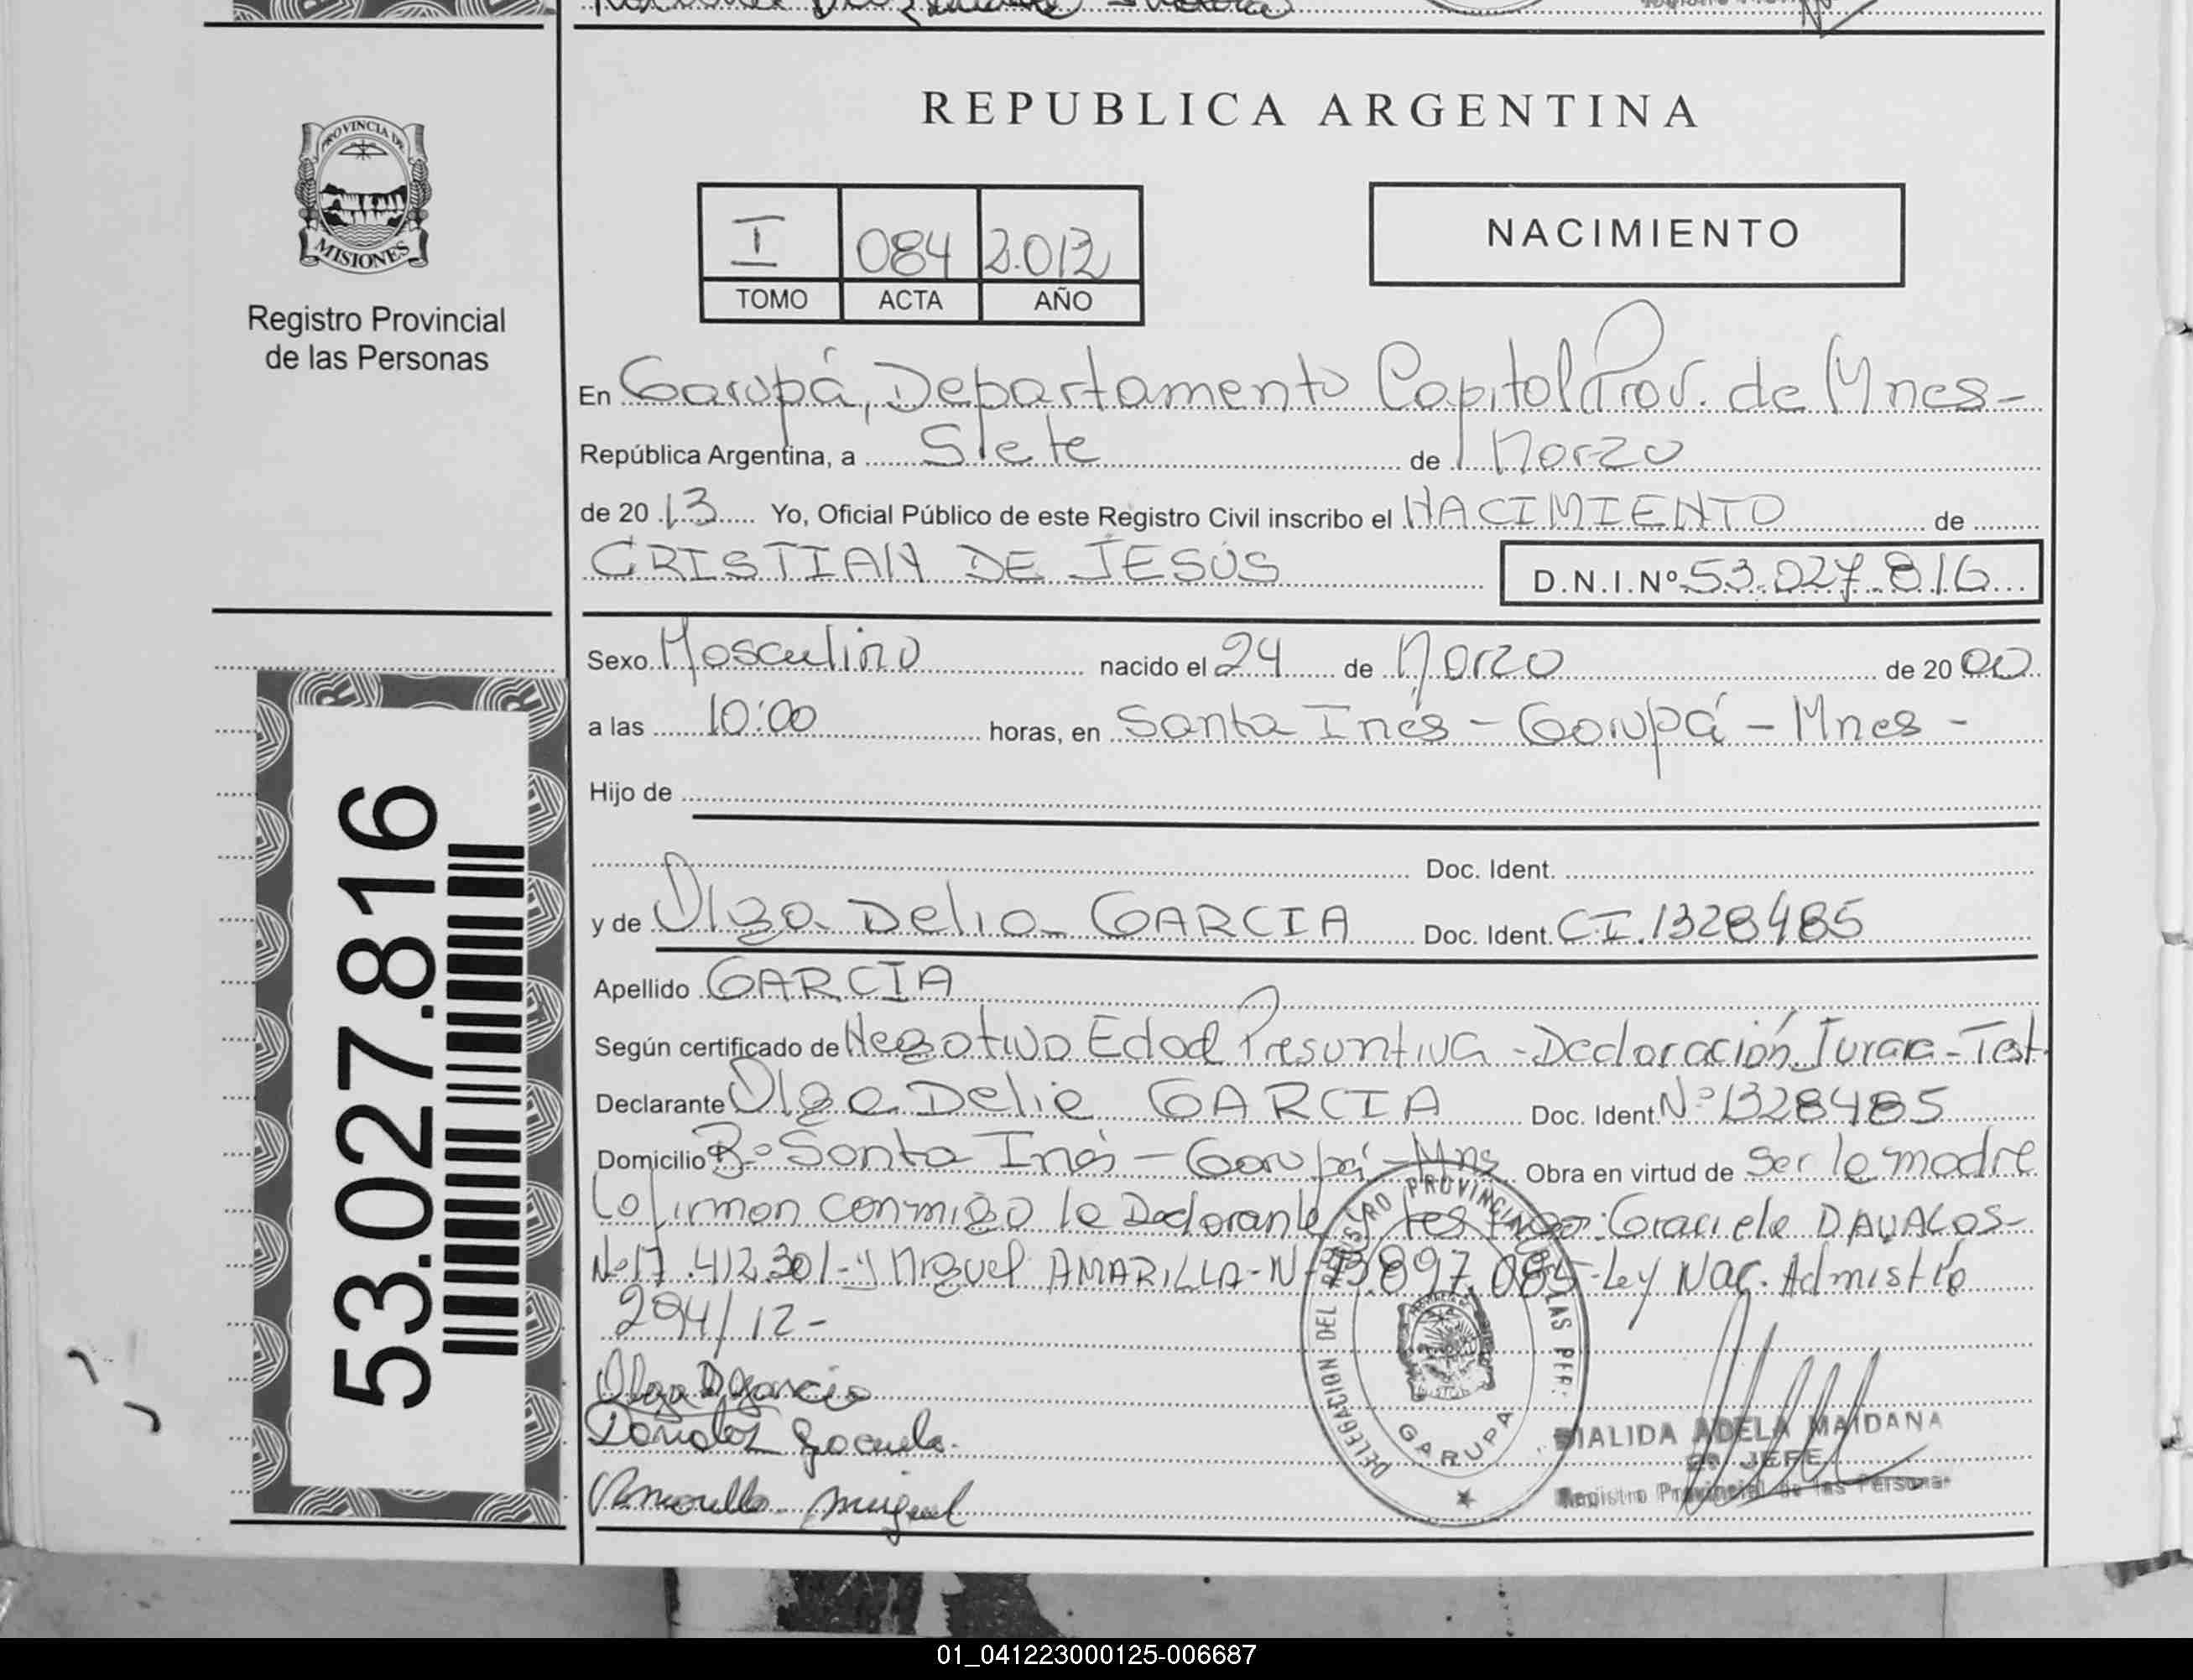 REPUBLICA ARGENTINA
PROVINCIA DE
MISIONES
Registro Provincial
de las Personas
I 084 2.012
TOMO ACTA AÑO
NACIMIENTO
En Garupá, Departamento Capital Prov. de Mnes-
República Argentina, a Siete de Marzo
de 20 13 Yo, Oficial Público de este Registro Civil inscribo el NACIMIENTO de
CRISTIAN DE JESÚS D.N.I.Nº 53.027.816
Sexo Masculino nacido el 24 de Marzo de 20 00
a las 10:00 horas, en Santa Inés - Garupá - Mnes -
Hijo de
Doc. Ident.
y de Olga Delia GARCIA Doc. Ident. CI.1328485
Apellido GARCIA
Según certificado de Negativo Edad Presuntiva - Declaración Jurada - Test.
Declarante Olga Delia GARCIA Doc. Ident. Nº 1328485
Domicilio Bº Santa Inés - Garupá - Mns Obra en virtud de ser la madre
Cofirman conmigo la Declarante y testigos: Graciela DAVALOS-
Nº 17.412.301- y Miguel AMARILLA - Nº 13.897.084 - Ley Nac. Admist Nº
294/12-
Olga D Garcia
Davalos Graciela
Amarilla Miguel
DELEGACION DEL REGISTRO PROVINCIAL DE LAS PER.
GARUPA
MAIDANA
2º JEFE
Registro Provincial de las Personas
53.027.816
01_041223000125-006687